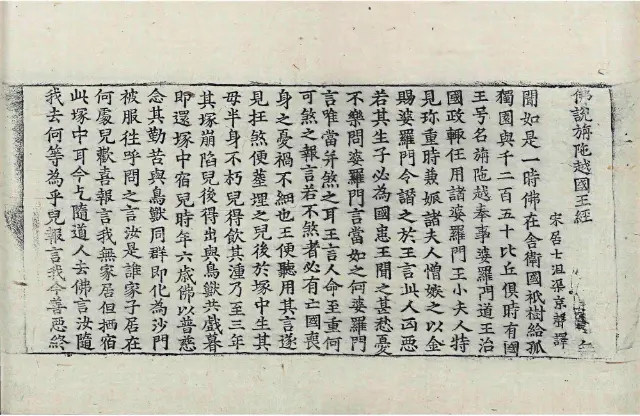 佛說旃陁越國王經
宋居士沮渠京聲譯
聞如是一時佛在舍衛國祇樹給孤
獨園與千二百五十比丘俱時有國
王号名旃陁越奉事婆羅門道王治
國政輙任用諸婆羅門王小夫人特
見珎重時兼娠諸夫人憎嫉之以金
賜婆羅門令譖之於王言此人凶惡
若其生子必為國患王聞之甚愁憂
不樂問婆羅門言當如之何婆羅門
言唯當并煞之耳王言人命至重何
可煞之報言若不煞者必有亡國喪
身之憂禍不細也王便聽用其言遂
見抂煞便葬埋之兒後於塚中生其
母半身不朽兒得飲其湩乃至三年
其塚崩陷兒後得出與鳥獸共戲暮
即還塚中宿兒時年六歲佛以普慈
念其勤苦與鳥獸同群即化為沙門
被服往呼問之言汝是誰家子居在
何處兒歡喜報言我無家居但栖宿
此塚中耳今乞隨道人去佛言汝隨
我去何等為乎兒報言我今善惡終